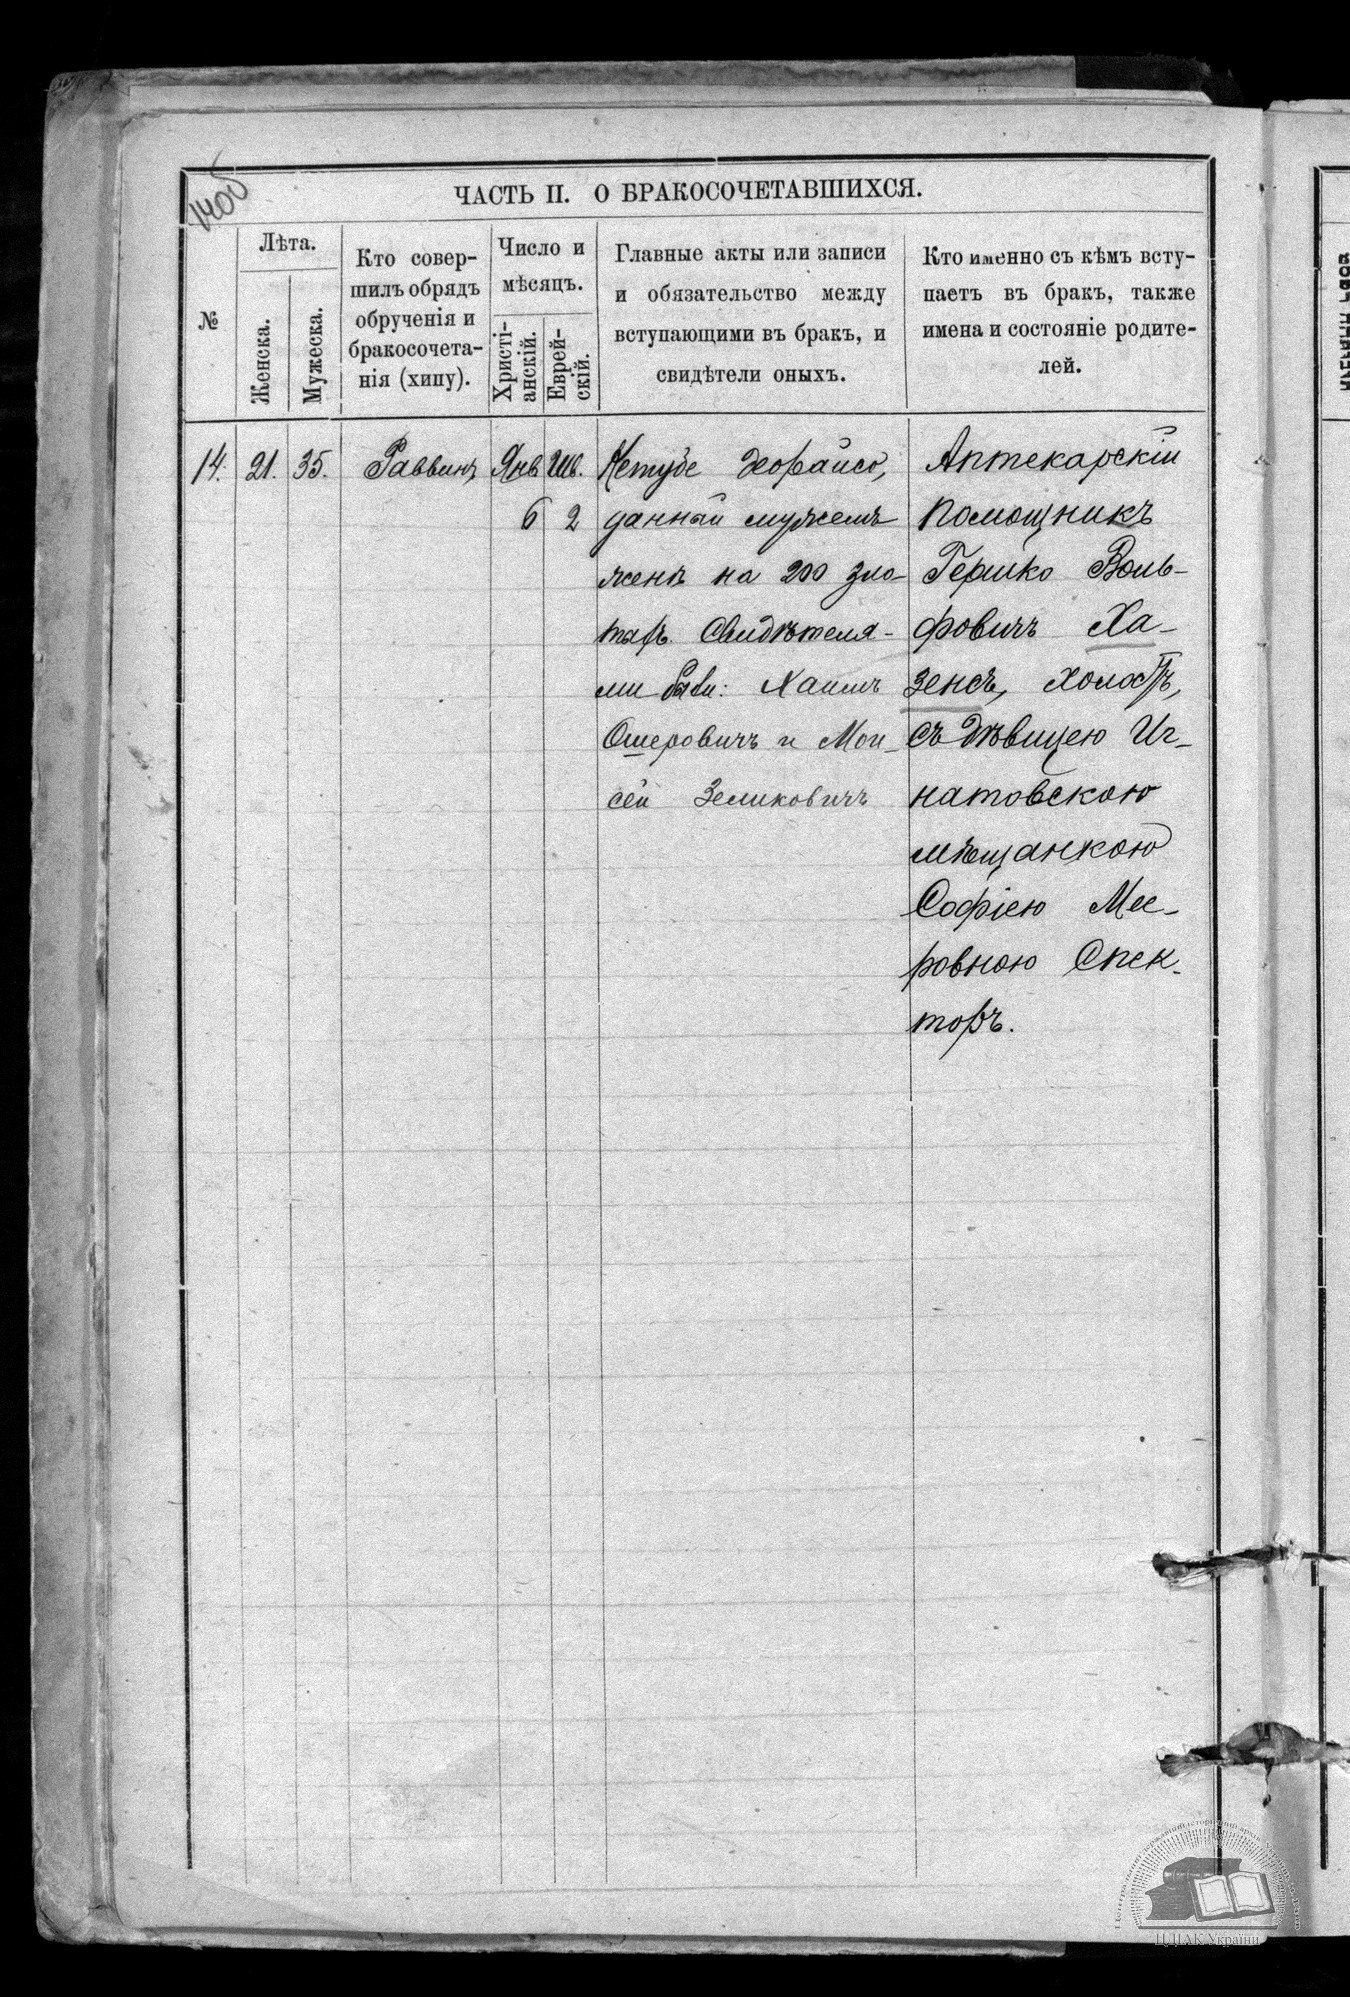 140б
ЧАСТЬ II. О БРАКОСОЧЕТАВШИХСЯ.
№
Лѣта.
Женска.
Мужеска.
Кто совер-
шилъ обрядъ
обрученія и
бракосочета-
нія (хипу).
Число и
мѣсяцъ.
Христі-
анскій.
Еврей-
скій.
Главные акты или записи
и обязательство между
вступающими въ бракъ, и
свидѣтели оныхъ.
Кто именно съ кѣмъ всту-
паетъ въ бракъ, также
имена и состояніе родите-
лей.
14. 21. 35. Раввинъ Янв Шв.
6 2
Кетубе
данный мужемъ
женѣ на 200 зло-
тыхъ. Свидѣтеля-
ми были: Хаимъ
Ошеровичъ и Мои-
сей Зеликовичъ
Аптекарскій
помощникъ
Гершко Воль-
фовичъ Ха-
зенсъ, холостъ,
съ дѣвицею Иг-
натовскою
мѣщанкою
Софіею Мее-
ровною Спек-
торъ.
ЦДІАК України